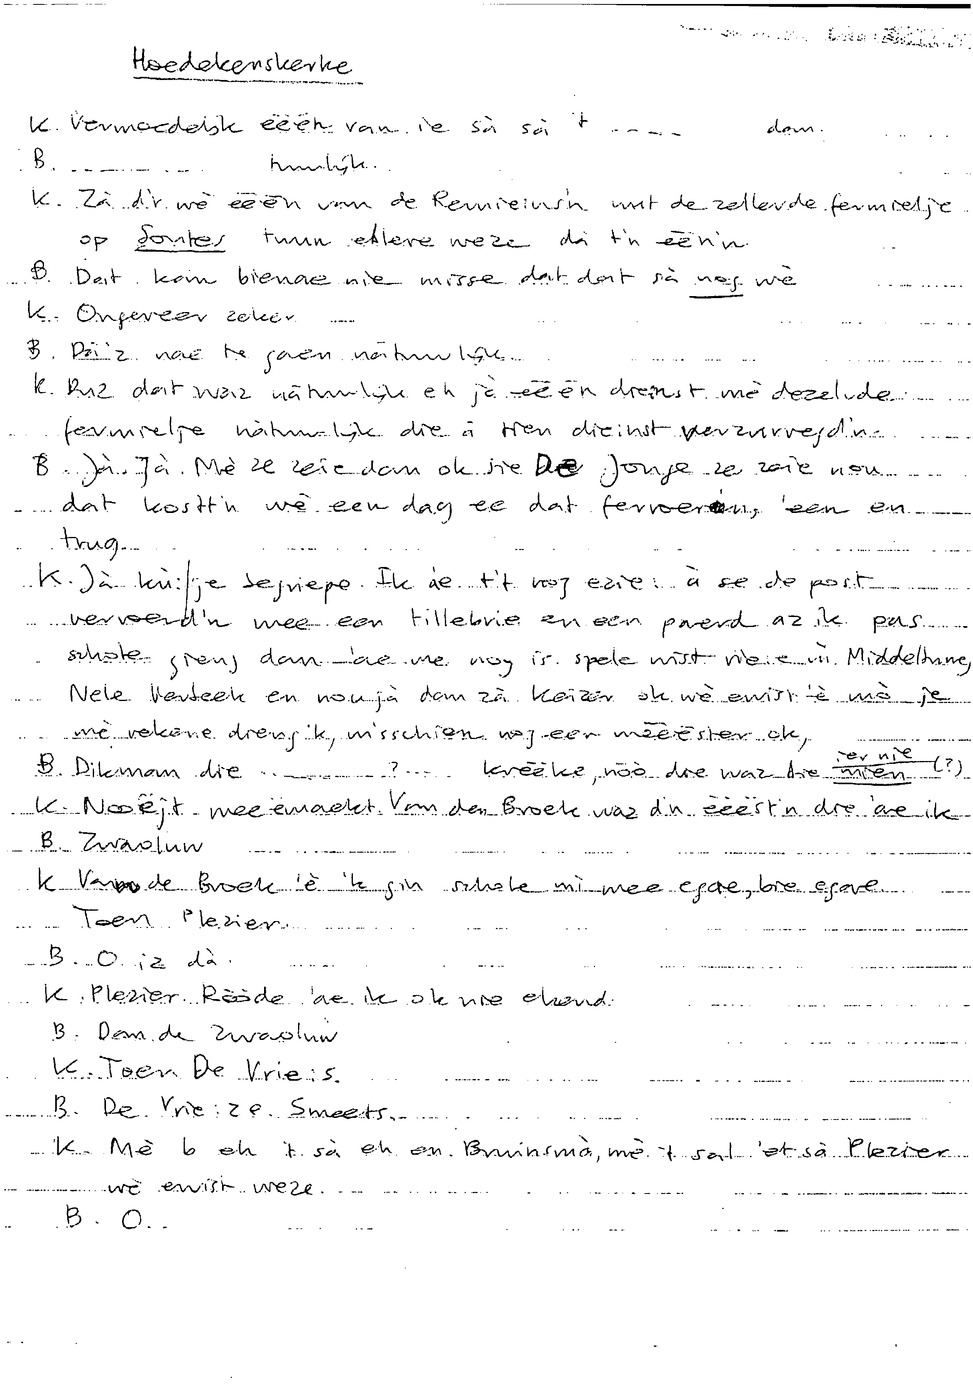 Hoedekenskerke
K. Vermoedelijk ëëën van ie sà sà 't ---- dan.
B. ---------- tuurlijk.
K. Zà d'r wè ëëën van de Remieinsn mit de zellevde fermielje
op Sontes tuun eklere weze dà t'n ëën'n
B. Dat kan bienae nie misse dat dat sà nog wè
K. Ongeveer zeker
B. Dà'z nae te gaen nätuurlijk
K. Duz dat waz nätuurlijk eh jà ëëën dieinst mè dezelvde
fermielje nätuurlijk die à tien dieinst verzurregd'n
B. Jà. Jà. Mè ze zeie dan ok sie De Jonge ze zeie nou
dat kostt'n wè een dag ee dat fervoer 'een en
trug
K. Jà kuj je begriepe. Ik àe t't nog ezie: à se de post
vervoerd'n mee een tillebrie en een paerd az ik pas
schole greng dan 'ae me nog is spele mist in Middelburg,
Nele Versteek en nou jà dan zà Keizer ok wè ewist 'è mè je
mè rekene dreng ik, misschien nog eer mëëëster ok,
B. Dikman die ----------?---- krëëke, nöö die waz hie ier nie mien (?)
K. Noëëjt meeëmaekt. Van den Broek waz d'n ëëëst'n die 'ae ik
B. Zwaoluw
K Van de Broek 'è 'k gin schole mi mee egae, bie egave
Toen Plezier.
B. O iz dà.
K. Plezier. Rööde 'ae ik ok nie ekend.
B. Dan de Zwaoluw
K. Toen De Vrie:s.
B. De Vrie:ze. Smeets.
K. Mè b eh 't sà eh en Bruinsmà, mè 't sal 'et sà Plezier
wè ewist weze.
B. O.